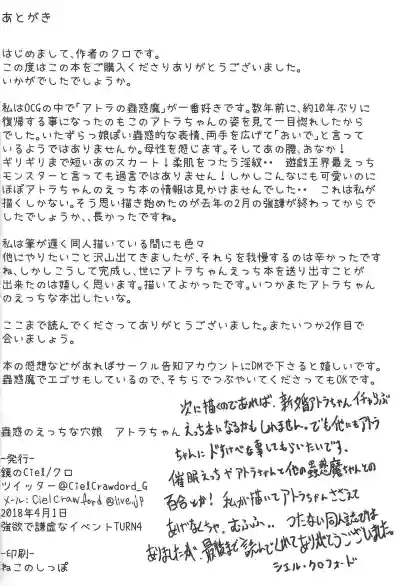 あとがき
はじめまして、作者のクロです。
この度はこの本をご購入くださりありがとうございました。
いかがでしたでしょうか。
私はOCGの中で「アトラの蟲惑魔」が一番好きです。数年前に、約10年ぶりに
復帰する事になったのもこのアトラちゃんの姿を見て一目惚れしたから
でした。いたずらっ娘ぽい蟲惑的な表情、両手を広げて「おいで」と言って
いるようではありませんか。母性を感じます。そしてあの腰、おなか!
ギリギリまで短いあのスカート!柔肌をつたう淫紋・・ 遊戯王界最えっち
モンスターと言っても過言ではありません!しかしこんなにも可愛いのに
ほぼアトラちゃんのえっち本の情報は見かけませんでした・・ これは私が
描くしかない。そう思い描き始めたのが去年の2月の強謙が終わってからで
したでしょうか、、長かったですね。
私は筆が遅く同人描いている間にも色々
他にやりたいこと沢山出てきましたが、それらを我慢するのは辛かったです
ね、しかしこうして完成し、世にアトラちゃんえっち本を送り出すことが
出来たのは嬉しく思います。描いてよかったです。いつかまたアトラちゃん
のえっちな本出したいな。
ここまで読んでくださってありがとうございました。またいつか2作目で
会いましょう。
本の感想などがあればサークル告知アカウントにDMで下さると嬉しいです。
蟲惑魔でエゴサもしているので、そちらでつぶやいてくださってもOKです。
次に描くのであれば、新婚アトラちゃんイチャらぶ
えっち本になるかもしれません。でも他にもアトラ
ちゃんにドすけべな事してもらいたいです。
催眠えっちやアトラちゃんと他の蟲惑魔ちゃんとの
百合とか! 私が描いてアトラちゃんささえて
あげなくちゃ、むふふ、、 つたない同人誌では
ありましたが、最後まで読んでくれてありがとうございました。
シエル・クロフォード
蟲惑のえっちな穴娘 アトラちゃん
-発行-
鏡のCiel/クロ
ツイッター@CielCrawdord_G
メール:CielCrawford@live.jp
2018年4月1日
強欲で謙虚なイベントTURN4
-印刷-
ねこのしっぽ